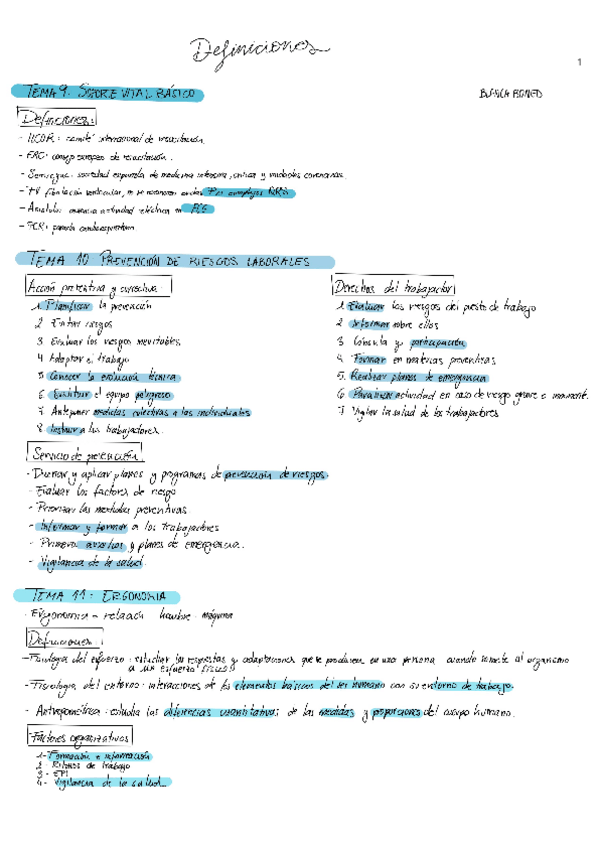 Definiciones
1
TEMA 9: SOPORTE VITAL BÁSICO
BLANCA
Definiciones:
- comité internacional de resucitación.
- consejo europeo de resucitación.
- sociedad española de medicina intensiva, crítica y unidades coronarias.
- FV fibrilación ventricular, no se reconocen ondas P ni complejos
- Asistolia: ausencia actividad eléctrica en ECG
- PCR: parada cardiorrespiratoria
TEMA 10 PREVENCIÓN DE RIESGOS LABORALES
Acción preventiva y correctiva:
1. Planificar la prevención
2 Evitar riesgos
3 Evaluar los riesgos inevitables
4 Adaptar el trabajo
5 Conocer la evolución técnica
6 Sustituir el equipo peligroso
7 Anteponer medidas colectivas a las individuales
8 Instruir a los trabajadores.
Derechos del trabajador
1. Evaluar los riesgos del puesto de trabajo
2 Informar sobre ellos
3 Consulta y participación
4. Formar en materias preventivas
5. Realizar planes de emergencia
6 Paralizar actividad en caso de riesgo grave e inminente.
7 Vigilar la salud de los trabajadores
Servicio de prevención
- Diseñar y aplicar planes y programas de prevención de riesgos.
- Evaluar los factores de riesgo
- Priorizar las medidas preventivas
- Informar y formar a los trabajadores
- Primeros auxilios y planes de emergencia.
- Vigilancia de la salud.
TEMA 11: ERGONOMIA
- Ergonomia - relación hombre - máquina
Definiciones:
- Fisiología del esfuerzo: estudiar las respuestas y adaptaciones que se producen en una persona cuando somete al organismo
a un esfuerzo físico
- Fisiología del entorno: interacciones de los elementos básicos del ser humano con su entorno de trabajo.
- Antropométrica: estudia las diferencias cuantitativas de las medidas y proporciones del cuerpo humano.
Factores organizativos
1- Formación e información
2- Ritmos de trabajo
3- EPI
4- Vigilancia de la salud.